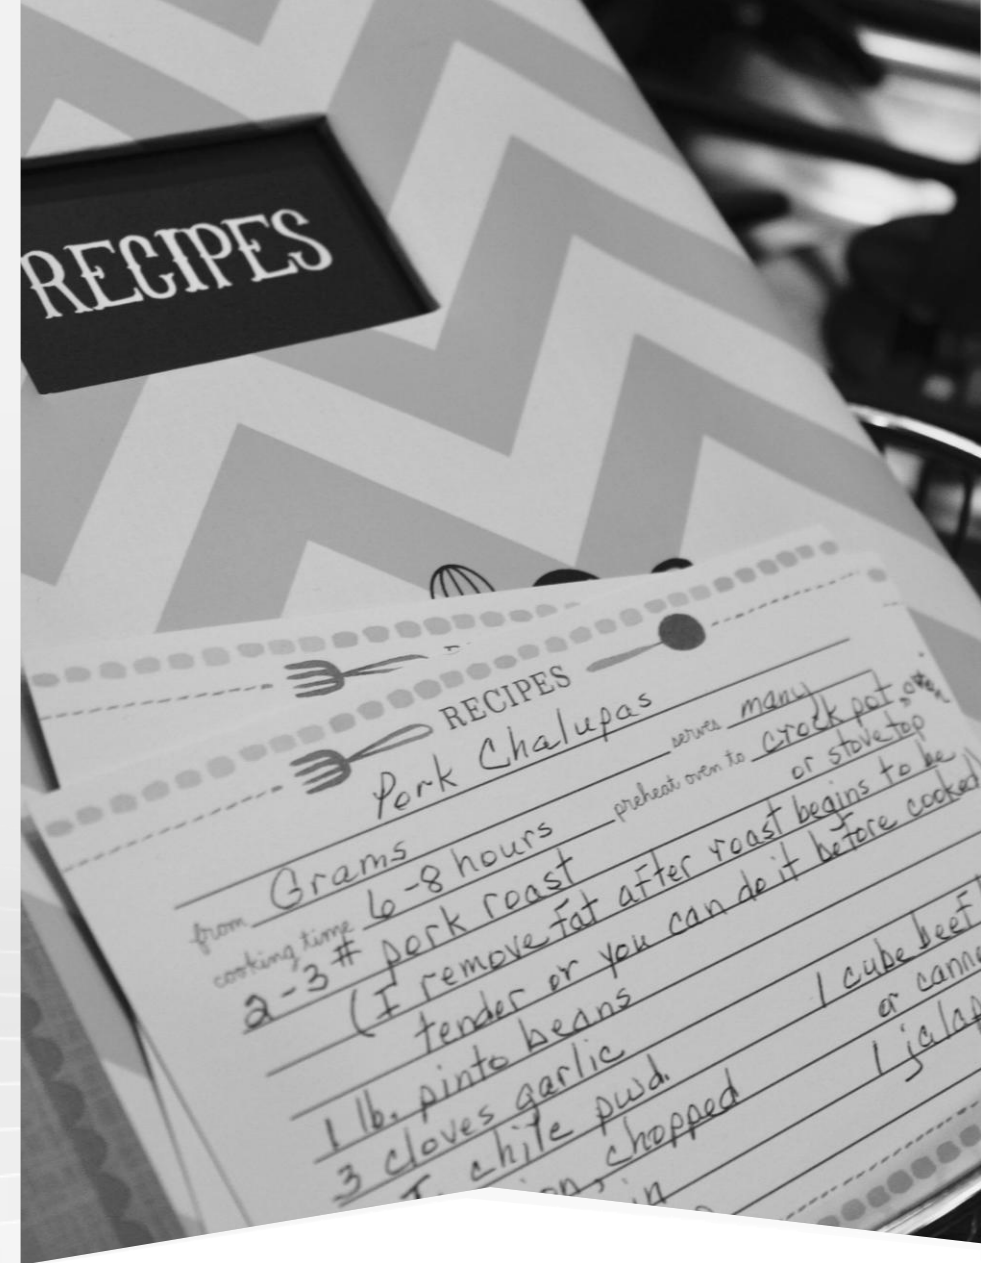 RECIPES
RECIPES
Pork Chalupas
from Grams serves many
cooking time 6-8 hours preheat oven to crock pot oven
or stovetop
2-3 # pork roast
(I remove fat after roast begins to be
tender or you can do it before cooked
1 lb. pinto beans
3 cloves garlic 1 cube beef
T. chile pwd. or
chopped 1